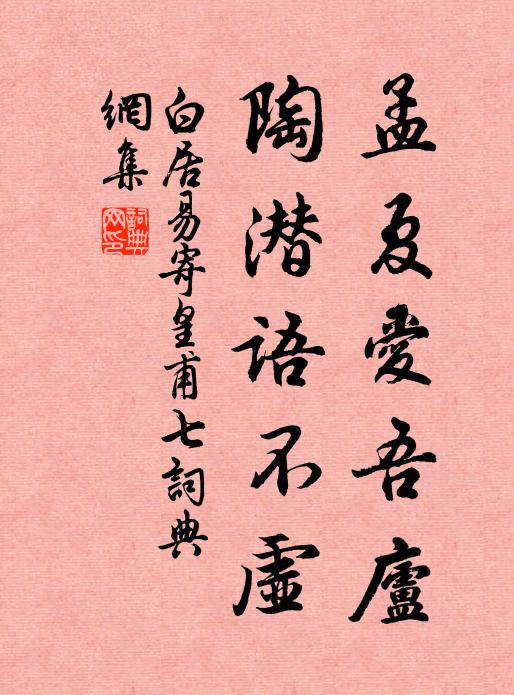 孟夏愛吾廬
陶潜語不虛
白居易寄皇甫七詞典
網集
詞典網印